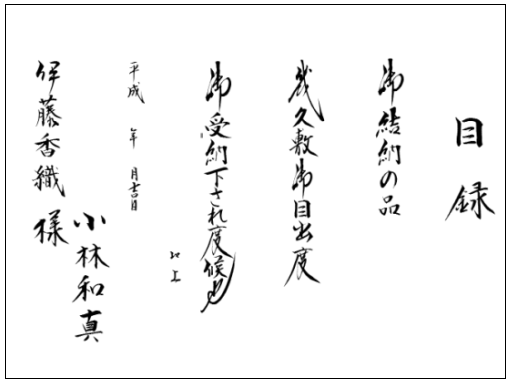 目録
御結納の品
幾久敷御目出度
御受納下され度候也
以上
平成 年 月吉日
小林和真
伊藤香織様